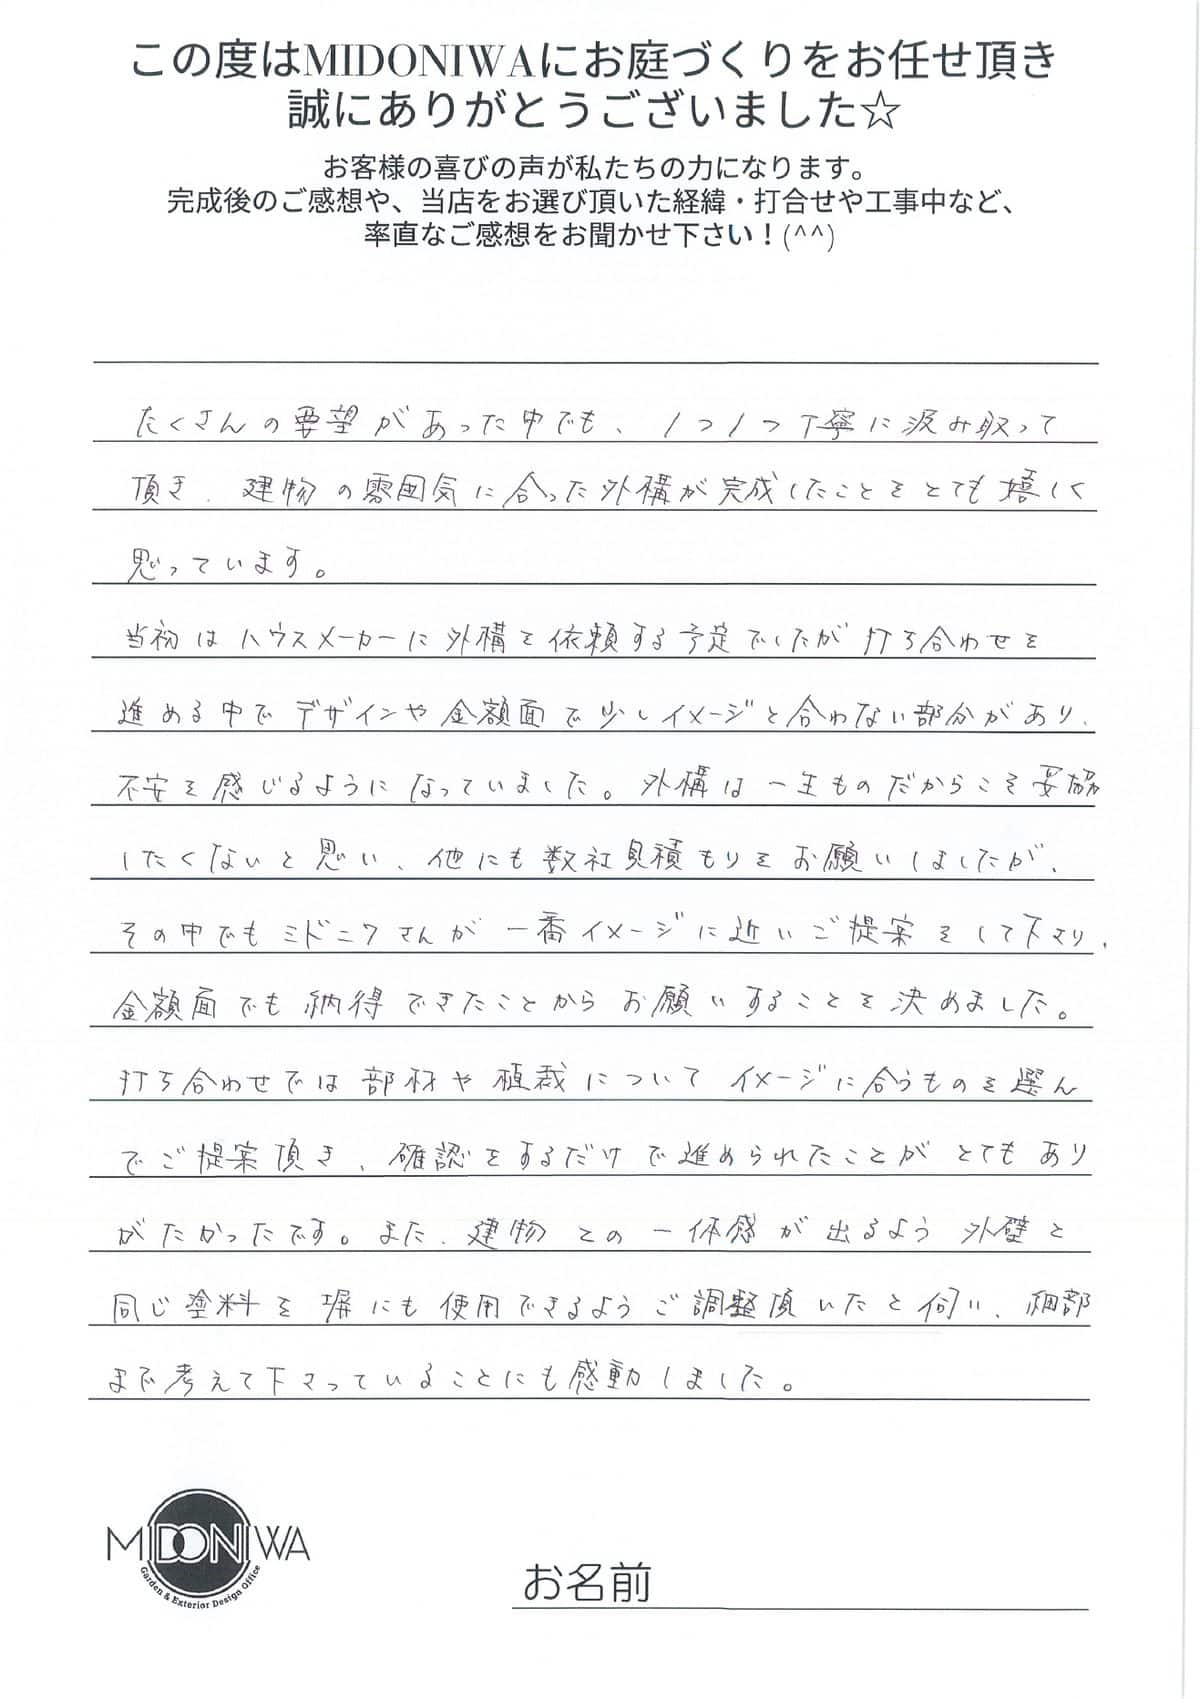 この度はMIDONIWAにお庭づくりをお任せ頂き
誠にありがとうございました☆
お客様の喜びの声が私たちの力になります。
完成後のご感想や、当店をお選び頂いた経緯・打合せや工事中など、
率直なご感想をお聞かせ下さい！(^^)
たくさんの要望があった中でも、1つ1つ丁寧に汲み取って
頂き、建物の雰囲気に合った外構が完成したことをとても嬉しく
思っています。
当初はハウスメーカーに外構を依頼する予定でしたが打ち合わせを
進める中でデザインや金額面で少しイメージと合わない部分があり、
不安を感じるようになっていました。外構は一生ものだからこそ妥協
したくないと思い、他にも数社見積もりをお願いしましたが、
その中でもミドニワさんが一番イメージに近いご提案をして下さり、
金額面でも納得できたことからお願いすることを決めました。
打ち合わせでは部材や植栽についてイメージに合うものを選ん
でご提案頂き、確認をするだけで進められたことがとてもあり
がたかったです。また、建物との一体感が出るよう外壁と
同じ塗料を塀にも使用できるようご調整頂いたと伺い、細部
まで考えて下さっていることにも感動しました。
MIDONIWA
Garden & Exterior Design Office
お名前